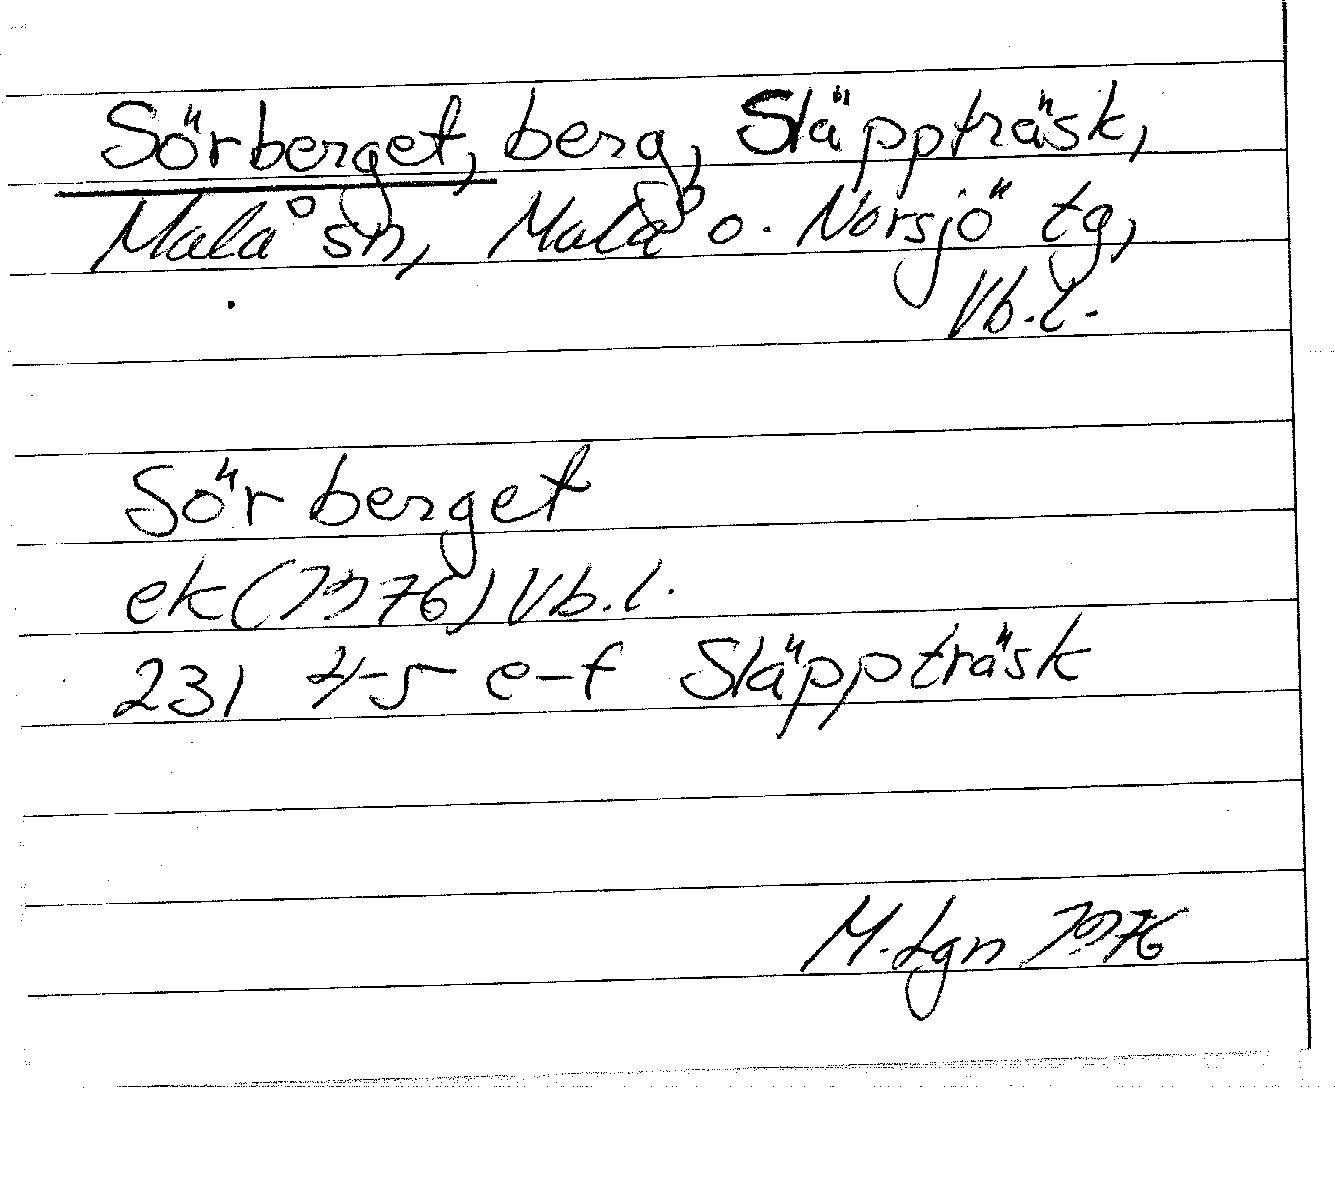 Sörberget, berg, Släppträsk,
Malå sn, Malå o. Norsjö tg,
Vb.l.
Sörberget
ek (1976) Vb.l.
231 4-5 e-f Släppträsk
M. Lgn 1976